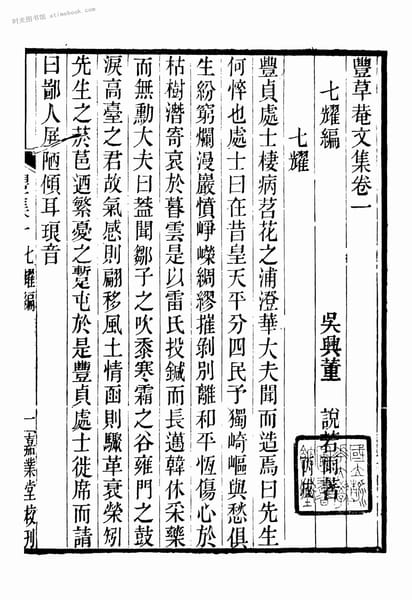 时光图书馆 atimebook.com
豐草菴文集卷一
七耀編 吳興董 說若雨著
七耀
豐貞處士棲病苕花之浦澄華大夫聞而造焉曰先生
何悴也處士曰在昔皇天平分四民予獨崎嶇與愁俱
生紛窮爛漫巖憤崢嶸綢繆摧剝別離和平恆傷心於
枯樹潛寄哀於暮雲是以雷氏投鍼而長邁韓休采藥
而無勳大夫曰蓋聞鄒子之吹黍寒霜之谷雍門之鼓
淚高臺之君故氣感則翩移風土情函則驟革衰榮矧
先生之菸芭迺繁憂之蹔屯於是豐貞處士徙席而請
曰鄙人展陋傾耳琅音
豐集一七耀編 一 嘉業堂校刊